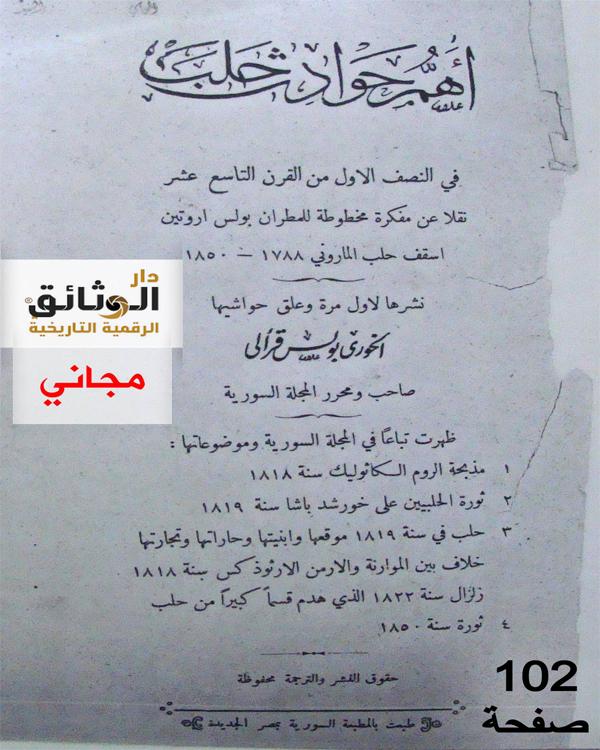 أهم حوادث حلب
في النصف الاول من القرن التاسع عشر
نقلا عن مفكرة مخطوطة للمطران بولس اروتين
اسقف حلب الماروني ١٧٨٨ – ١٨٥٠
دار
الوثائق
الرقمية التاريخية
مجاني
نشرها لاول مرة وعلق حواشيها
الخوري بولس قرألي
صاحب ومحرر المجلة السورية
ظهرت تباعاً في المجلة السورية وموضوعاتها :
١ مذبحة الروم الكاثوليك سنة ١٨١٨
٢ ثورة الحلبيين على خورشد باشا سنة ١٨١٩
٣ حلب في سنة ١٨١٩ موقعها وابنيتها وحاراتها وتجارتها
خلاف بين الموارنة والارمن الارثوذكس سنة ١٨١٨
زلزال سنة ١٨٢٢ الذي هدم قسماً كبيراً من حلب
٤ ثورة سنة ١٨٥٠
حقوق النشر والترجمة محفوظة
طبعت بالمطبعة السورية بمصر الجديدة
102
صفحة